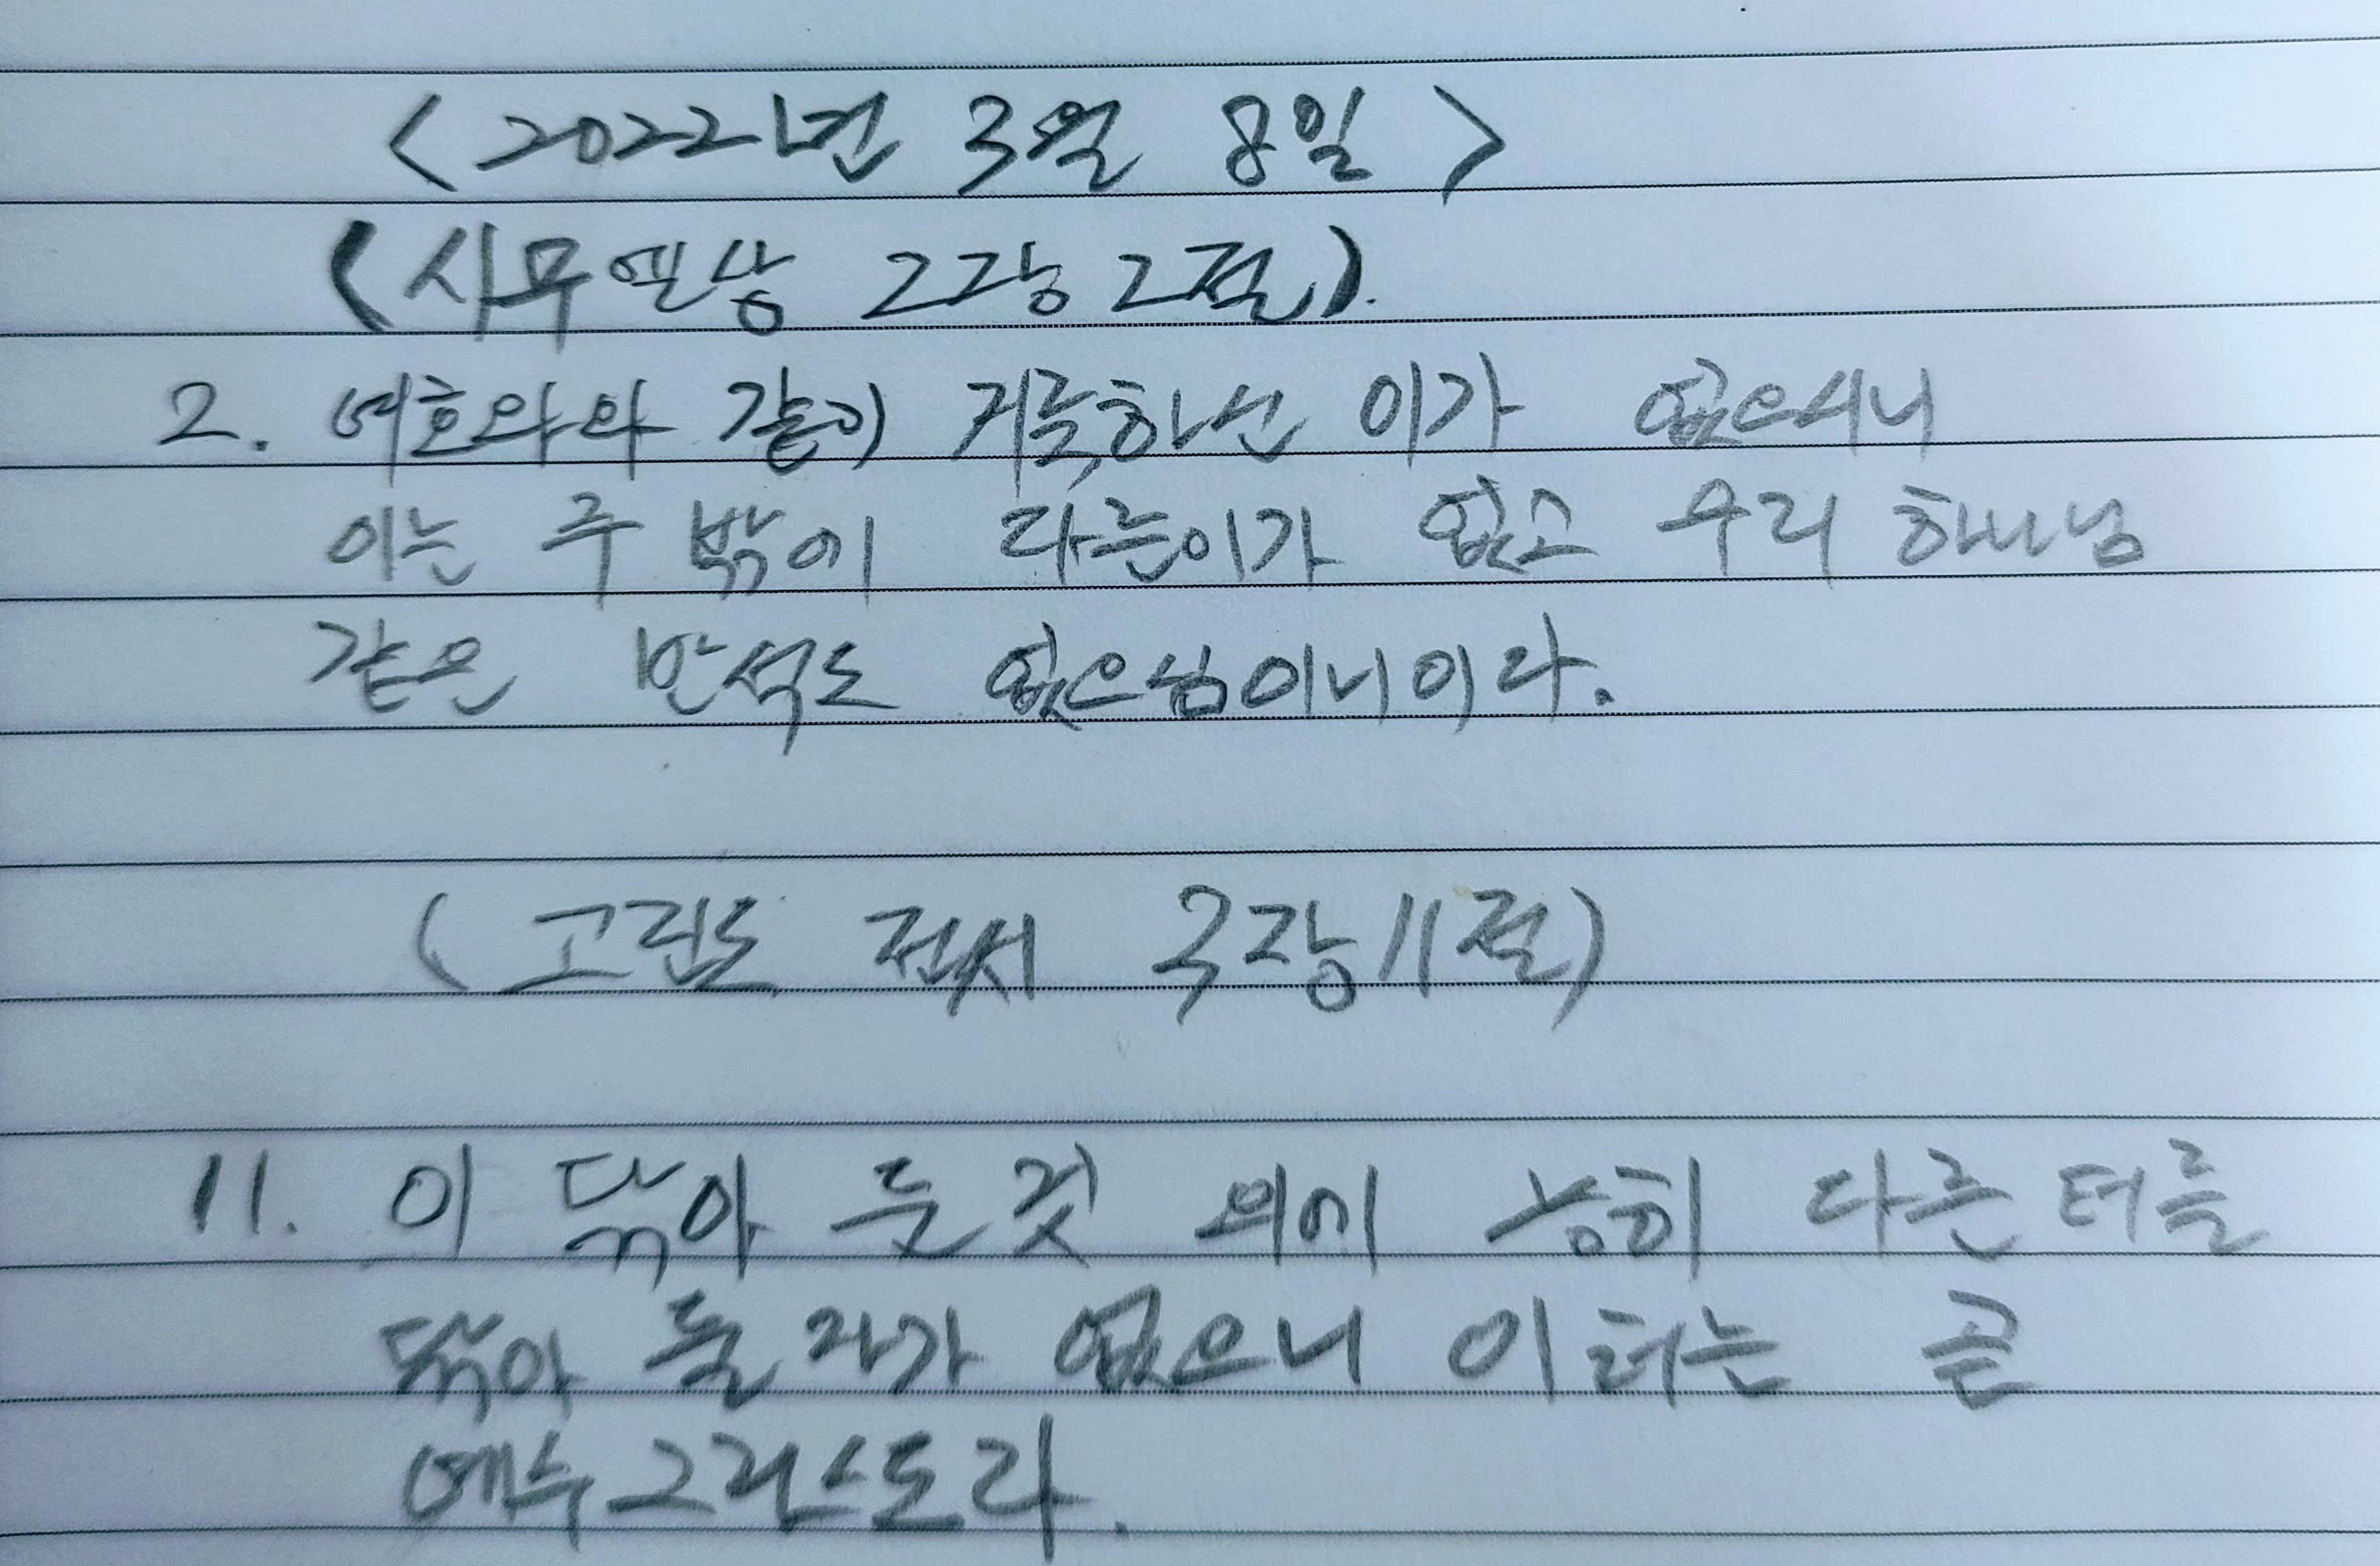 <2022년 3월 8일>
(사무엘상 2장 2절).
2. 여호와와 같이 거룩하신 이가 없으시니
이는 주 밖에 다른이가 없고 우리 하나님
같은 반석도 없으심이니이다.
(고린도 전서 3장 11절)
11. 이 닦아 둔 것 외에 능히 다른 터를
닦아 둘 자가 없으니 이 터는 곧
예수 그리스도라.